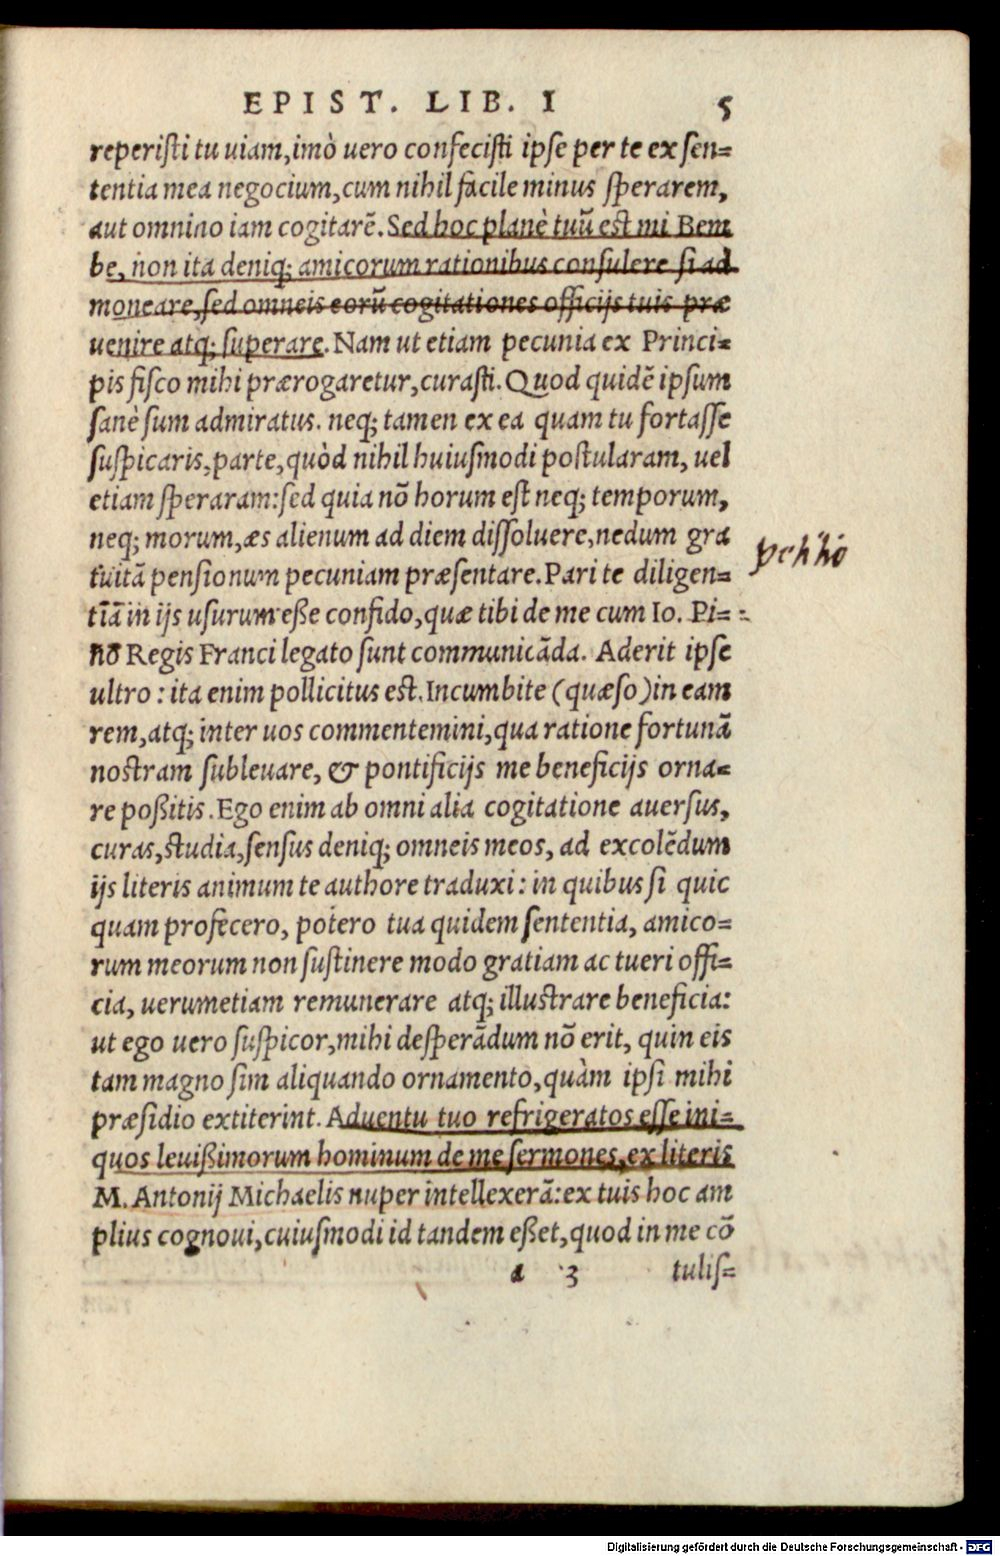 EPIST. LIB. I 5
reperisti tu uiam, imò uero confecisti ipse per te ex sen=
tentia mea negocium, cum nihil facile minus sperarem,
aut omnino iam cogitarē. Sed hoc planè tuū est mi Bem
be, non ita deniq; amicorum rationibus consulere si ad
moneare, sed omneis eorū cogitationes officijs tuis præ
uenire atq; superare. Nam ut etiam pecunia ex Princi=
pis fisco mihi prærogaretur, curasti. Quod quidē ipsum
sanè sum admiratus. neq; tamen ex ea quam tu fortasse
suspicaris, parte, quòd nihil huiusmodi postularam, uel
etiam speraram: sed quia nō horum est neq; temporum,
neq; morum, æs alienum ad diem dissoluere, nedum gra
tuitā pensionum pecuniam præsentare. Pari te diligen=
tiā in ijs usurum eße confido, quæ tibi de me cum Io. Pi=
nō Regis Franci legato sunt communicāda. Aderit ipse
ultro: ita enim pollicitus est. Incumbite (quæso) in eam
rem, atq; inter uos commentemini, qua ratione fortunā
nostram subleuare, & pontificijs me beneficijs orna=
re poßitis. Ego enim ab omni alia cogitatione auersus,
curas, studia, sensus deniq; omneis meos, ad excolēdum
ijs literis animum te authore traduxi: in quibus si quic
quam profecero, potero tua quidem sententia, amico=
rum meorum non sustinere modo gratiam ac tueri offi=
cia, uerumetiam remunerare atq; illustrare beneficia:
ut ego uero suspicor, mihi desperādum nō erit, quin eis
tam magno sim aliquando ornamento, quàm ipsi mihi
præsidio extiterint. Aduentu tuo refrigeratos esse ini=
quos leuißimorum hominum de me sermones, ex literis
M. Antonij Michaelis nuper intellexerā: ex tuis hoc am
plius cognoui, cuiusmodi id tandem eßet, quod in me cō
a 3 tulis=
Digitalisierung gefördert durch die Deutsche Forschungsgemeinschaft - DFG